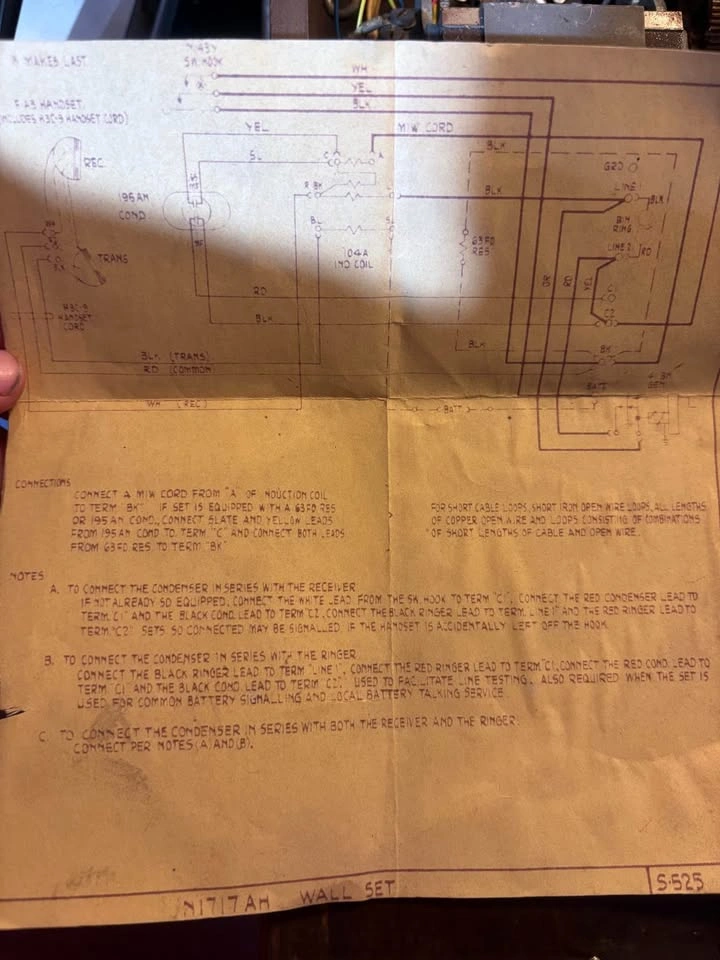 MAKES LAST
SW. HOOK
WH
YEL
BLK
F A3 HANDSET
(INCLUDES H3C-9 HANDSET CORD)
YEL
M1W CORD
SL
C
A
BLK
REC.
GRD
LINE 1
BLK
195 AM
COND
R
BK
BLK
BIM
RING
TRANS
BL
63 FD
RES
LINE 2
RD
104A
IND COIL
YEL
RD
H3C-9
HANDSET
CORD
RD
BLK
C2
BLK
BK
BLK (TRANS)
RD (COMMON
WH (REC)
BATT
BATT
GEN
CONNECTIONS
CONNECT A M1W CORD FROM "A" OF INDUCTION COIL
TO TERM "BK" IF SET IS EQUIPPED WITH A 63FD RES
OR 195AM COND., CONNECT SLATE AND YELLOW LEADS
FROM 195AM COND TO TERM "C" AND CONNECT BOTH LEADS
FROM 63FD RES TO TERM "BK"
FOR SHORT CABLE LOOPS, SHORT IRON OPEN WIRE LOOPS, ALL LENGTHS
OF COPPER OPEN WIRE AND LOOPS CONSISTING OF COMBINATIONS
OF SHORT LENGTHS OF CABLE AND OPEN WIRE.
NOTES
A. TO CONNECT THE CONDENSER IN SERIES WITH THE RECEIVER
IF NOT ALREADY SO EQUIPPED, CONNECT THE WHITE LEAD FROM THE SW. HOOK TO TERM "C1", CONNECT THE RED CONDENSER LEAD TO
TERM. C1" AND THE BLACK COND. LEAD TO TERM "C2, CONNECT THE BLACK RINGER LEAD TO TERM. LINE 1" AND THE RED RINGER LEAD TO
TERM "C2" SETS SO CONNECTED MAY BE SIGNALLED, IF THE HANDSET IS ACCIDENTALLY LEFT OFF THE HOOK.
B. TO CONNECT THE CONDENSER IN SERIES WITH THE RINGER
CONNECT THE BLACK RINGER LEAD TO TERM "LINE 1", CONNECT THE RED RINGER LEAD TO TERM C1, CONNECT THE RED COND. LEAD TO
TERM "C1 AND THE BLACK COND. LEAD TO TERM "C2" USED TO FACILITATE LINE TESTING. ALSO REQUIRED WHEN THE SET IS
USED FOR COMMON BATTERY SIGNALLING AND LOCAL BATTERY TALKING SERVICE.
C. TO CONNECT THE CONDENSER IN SERIES WITH BOTH THE RECEIVER AND THE RINGER.
CONNECT PER NOTES (A) AND (B).
N1717AH WALL SET
S-525